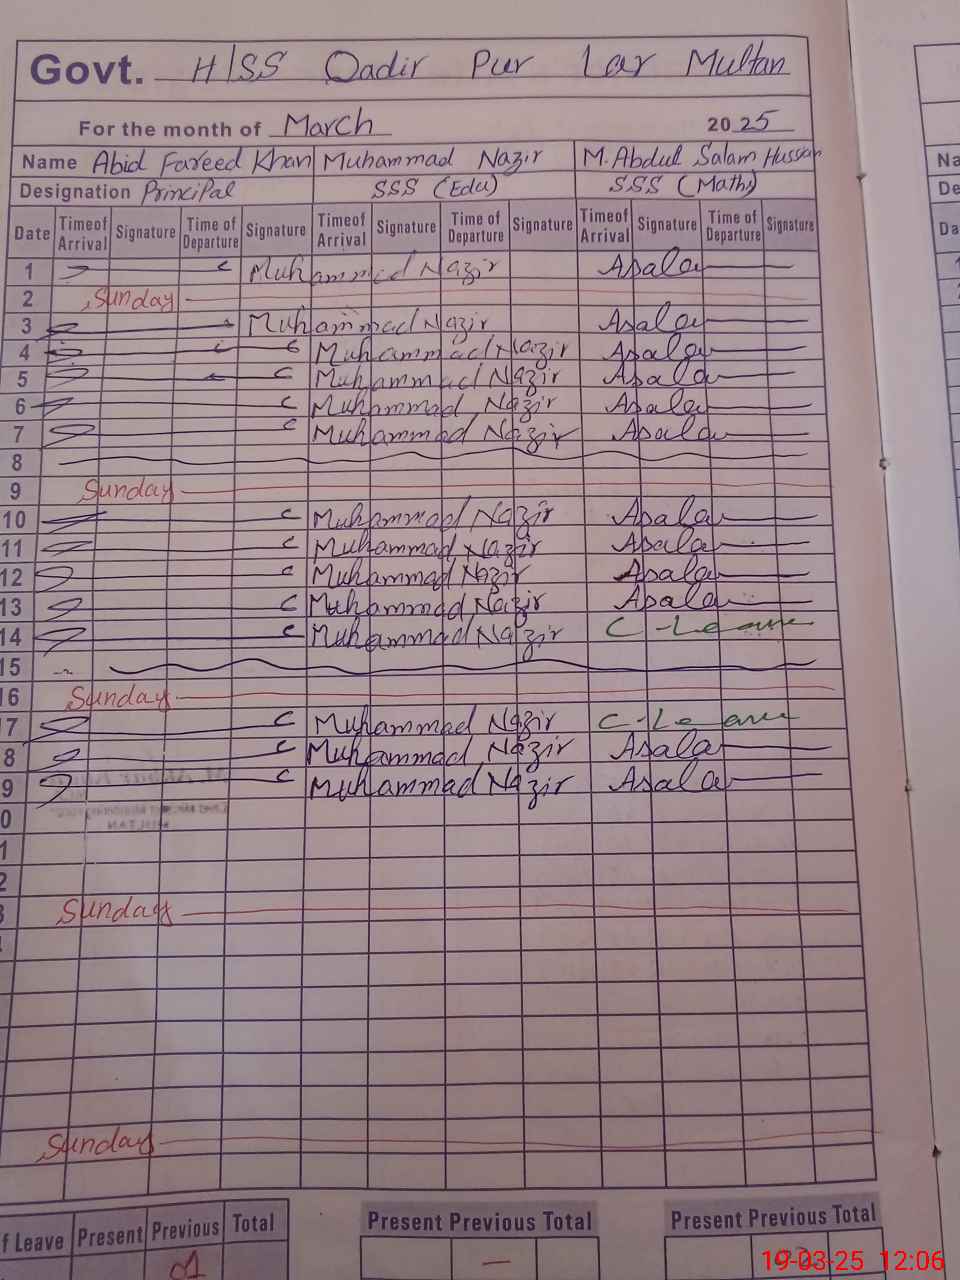 Govt. H/SS Qadir Pur Lar Multan
For the month of March 2025
Name Abid Fareed Khan Muhammad Nazir M. Abdul Salam Hussain
Designation Principal SSS (Edu) SSS (Math)
Date Timeof Arrival Signature Time of Departure Signature Timeof Arrival Signature Time of Departure Signature Timeof Arrival Signature Time of Departure Signature
1 Muhammad Nazir Asalam
2 Sunday
3 Muhammad Nazir Asalam
4 Muhammad Nazir Asalam
5 Muhammad Nazir Asalam
6 Muhammad Nazir Asalam
7 Muhammad Nazir Asalam
8
9 Sunday
10 Muhammad Nazir Asalam
11 Muhammad Nazir Asalam
12 Muhammad Nazir Asalam
13 Muhammad Nazir Asalam
14 Muhammad Nazir C-Leave
15
16 Sunday
7 Muhammad Nazir C-Leave
8 Muhammad Nazir Asalam
9 Muhammad Nazir Asalam
0
1
2
Sunday
Sunday
f Leave Present Previous Total Present Previous Total Present Previous Total
01 –
19-03-25 12:06